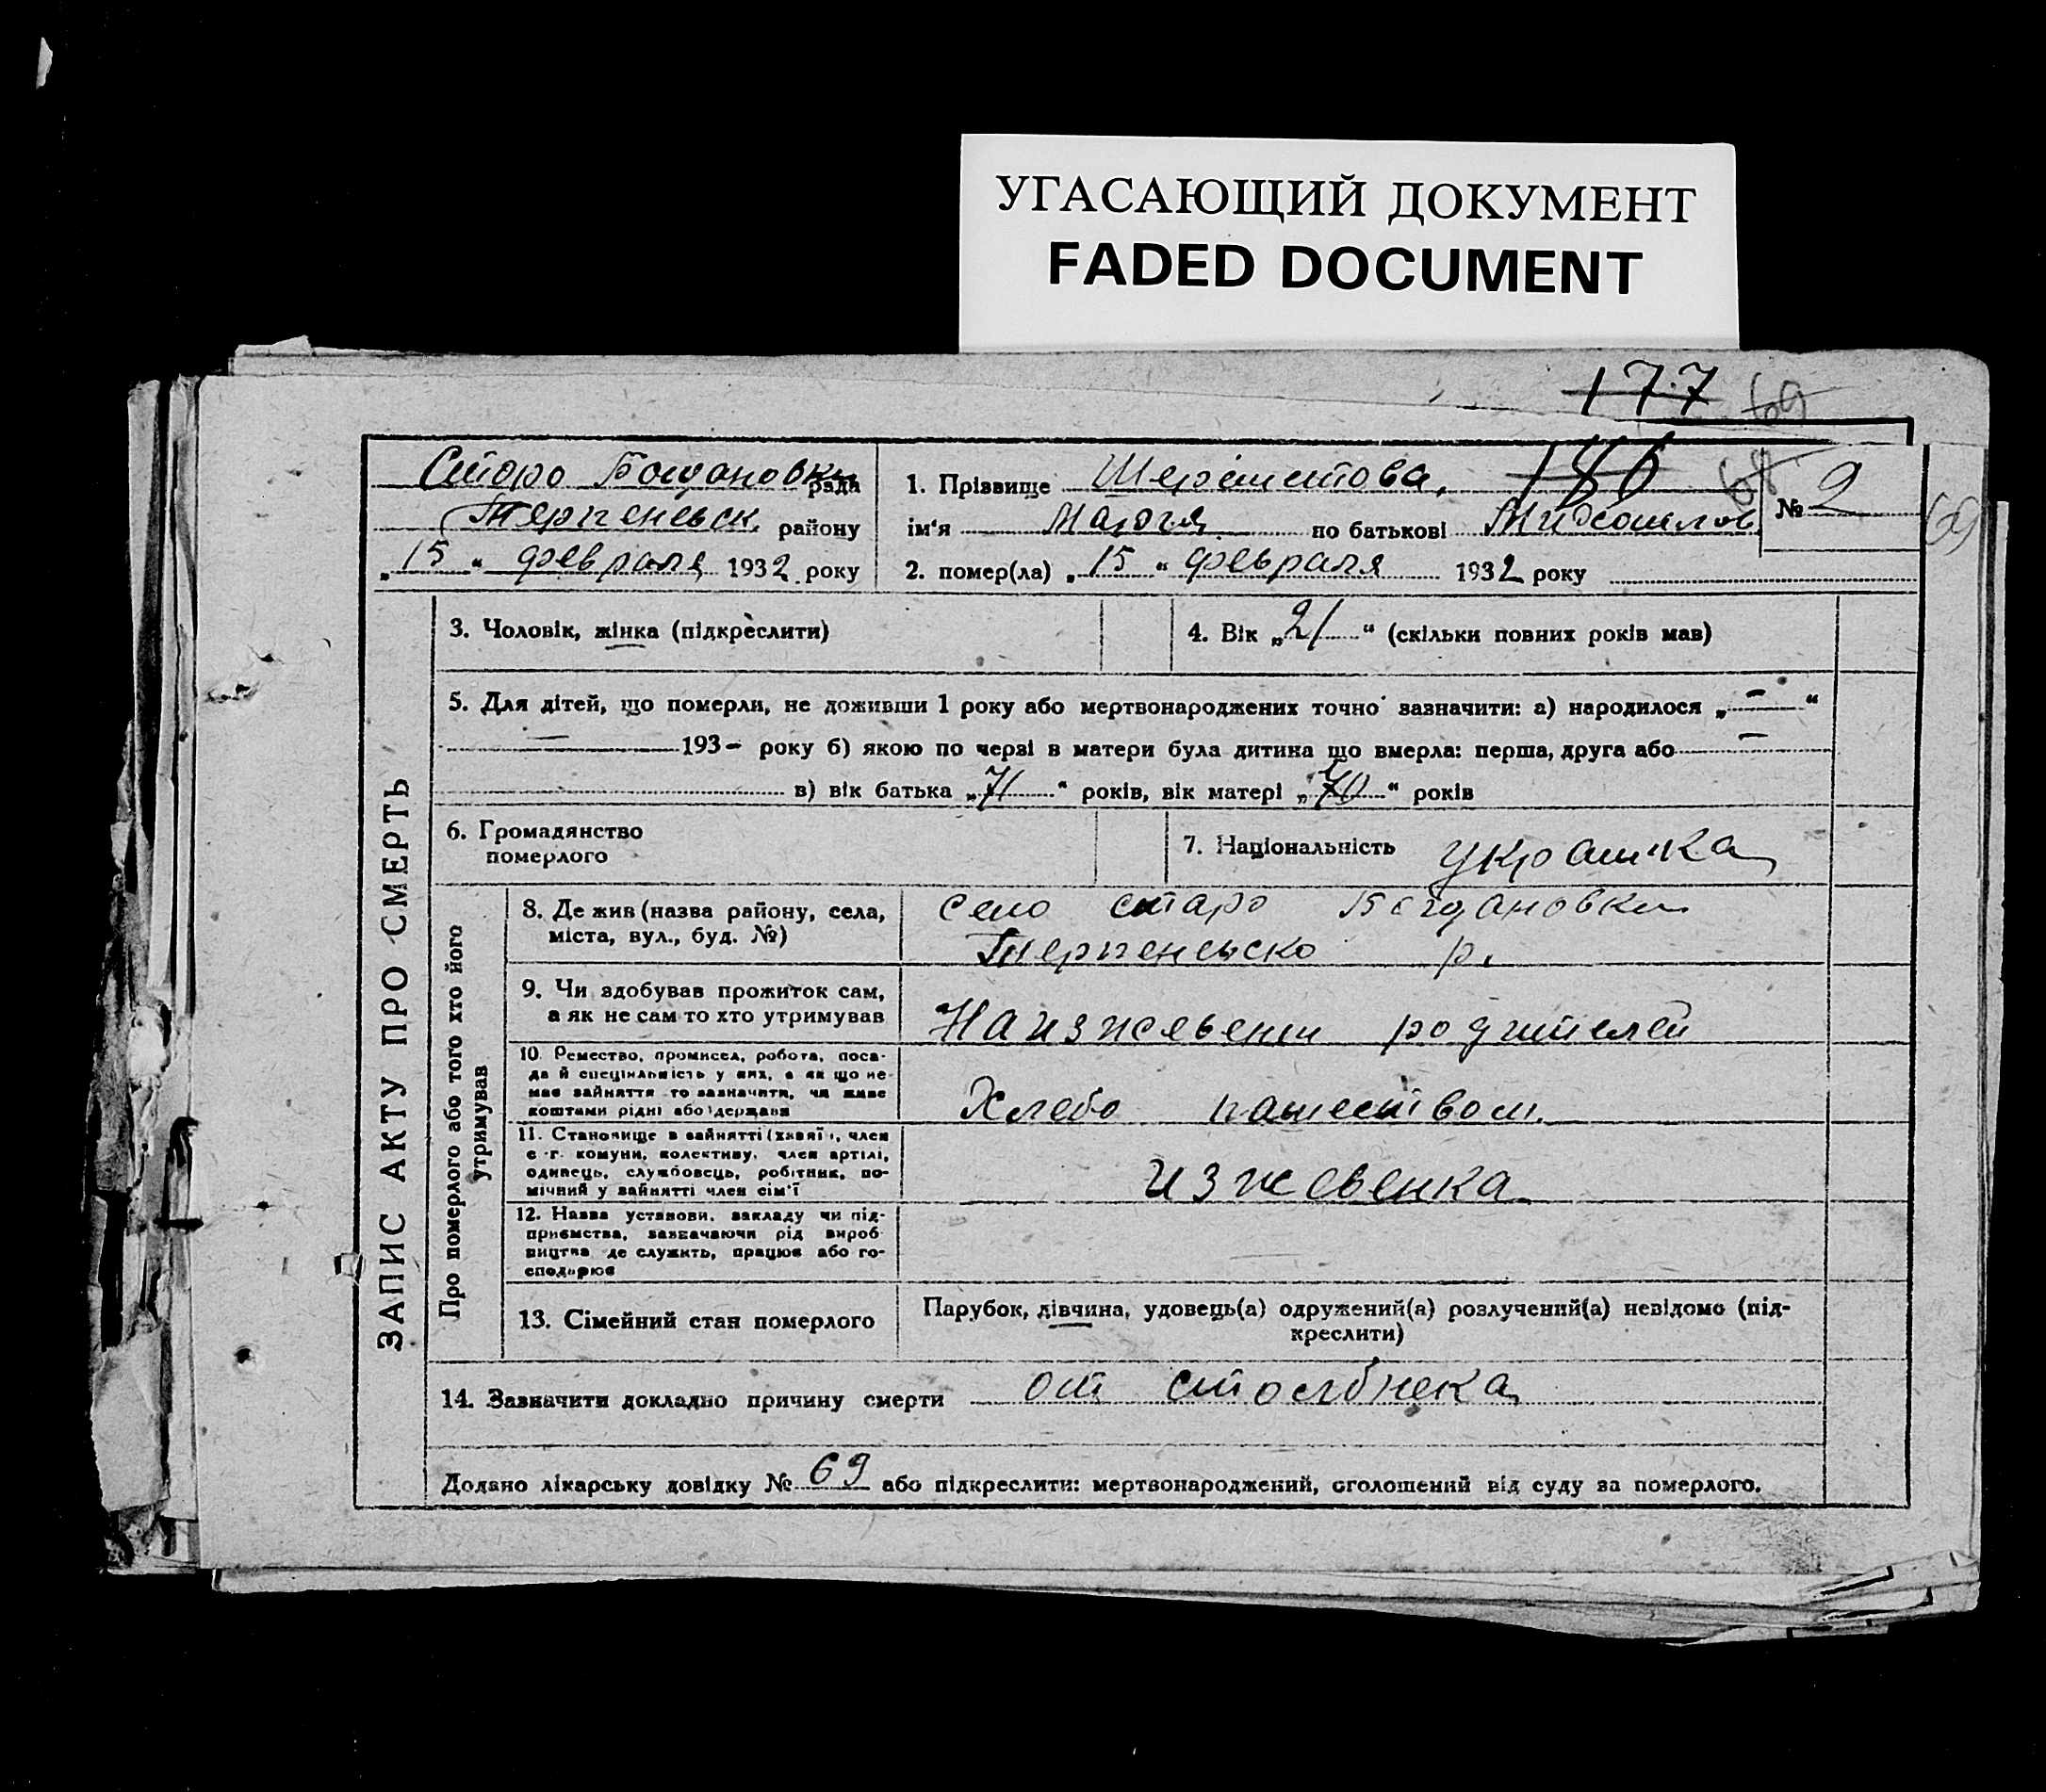 УГАСАЮЩИЙ ДОКУМЕНТ
FADED DOCUMENT
177 69
Старо Богдановка рада
Терпеневск. району
„15“ февраля 1932 року
1. Прізвище 180 68
ім'я Мария по батькові
2. помер(ла) „15“ февраля 1932 року
№ 2
69
ЗАПИС АКТУ ПРО СМЕРТЬ
Про померлого або того хто його утримував
3. Чоловік, жінка (підкреслити)
4. Вік „21“ (скільки повних років мав)
5. Для дітей, що померли, не доживши 1 року або мертвонароджених точно зазначити: а) народилося „—“
— 193- року б) якою по черзі в матери була дитина що вмерла: перша, друга або —
в) вік батька „71“ років, вік матері „70“ років
6. Громадянство
померлого
7. Національність украинка
8. Де жив (назва району, села,
міста, вул., буд. №)
село старо Богдановки
Терпеневско р.
9. Чи здобував прожиток сам,
а як не сам то хто утримував
На изжевении родителей
10. Ремество, промисел, робота, поса-
да й спеціяльність у них, а як що не
має зайняття то зазначити, чи живе
коштами рідні або держави
Хлебо пашеством.
11. Становище в зайнятті (хазяїн, член
с.-г. комуни, колективу, член артілі,
одинець, службовець, робітник, по-
мічний у зайнятті член сім'ї
изжевенка
12. Назва установи, закладу чи під-
приємства, зазначаючи рід вироб
ництва де служить, працює або го-
сподарює
13. Сімейний стан померлого
Парубок, дівчина, удовець(а) одружений(а) розлучений(а) невідомо (під-
креслити)
14. Зазначити докладно причину смерти от столбнека
Додано лікарську довідку № 69 або підкреслити: мертвонароджений, оголошений від суду за померлого.